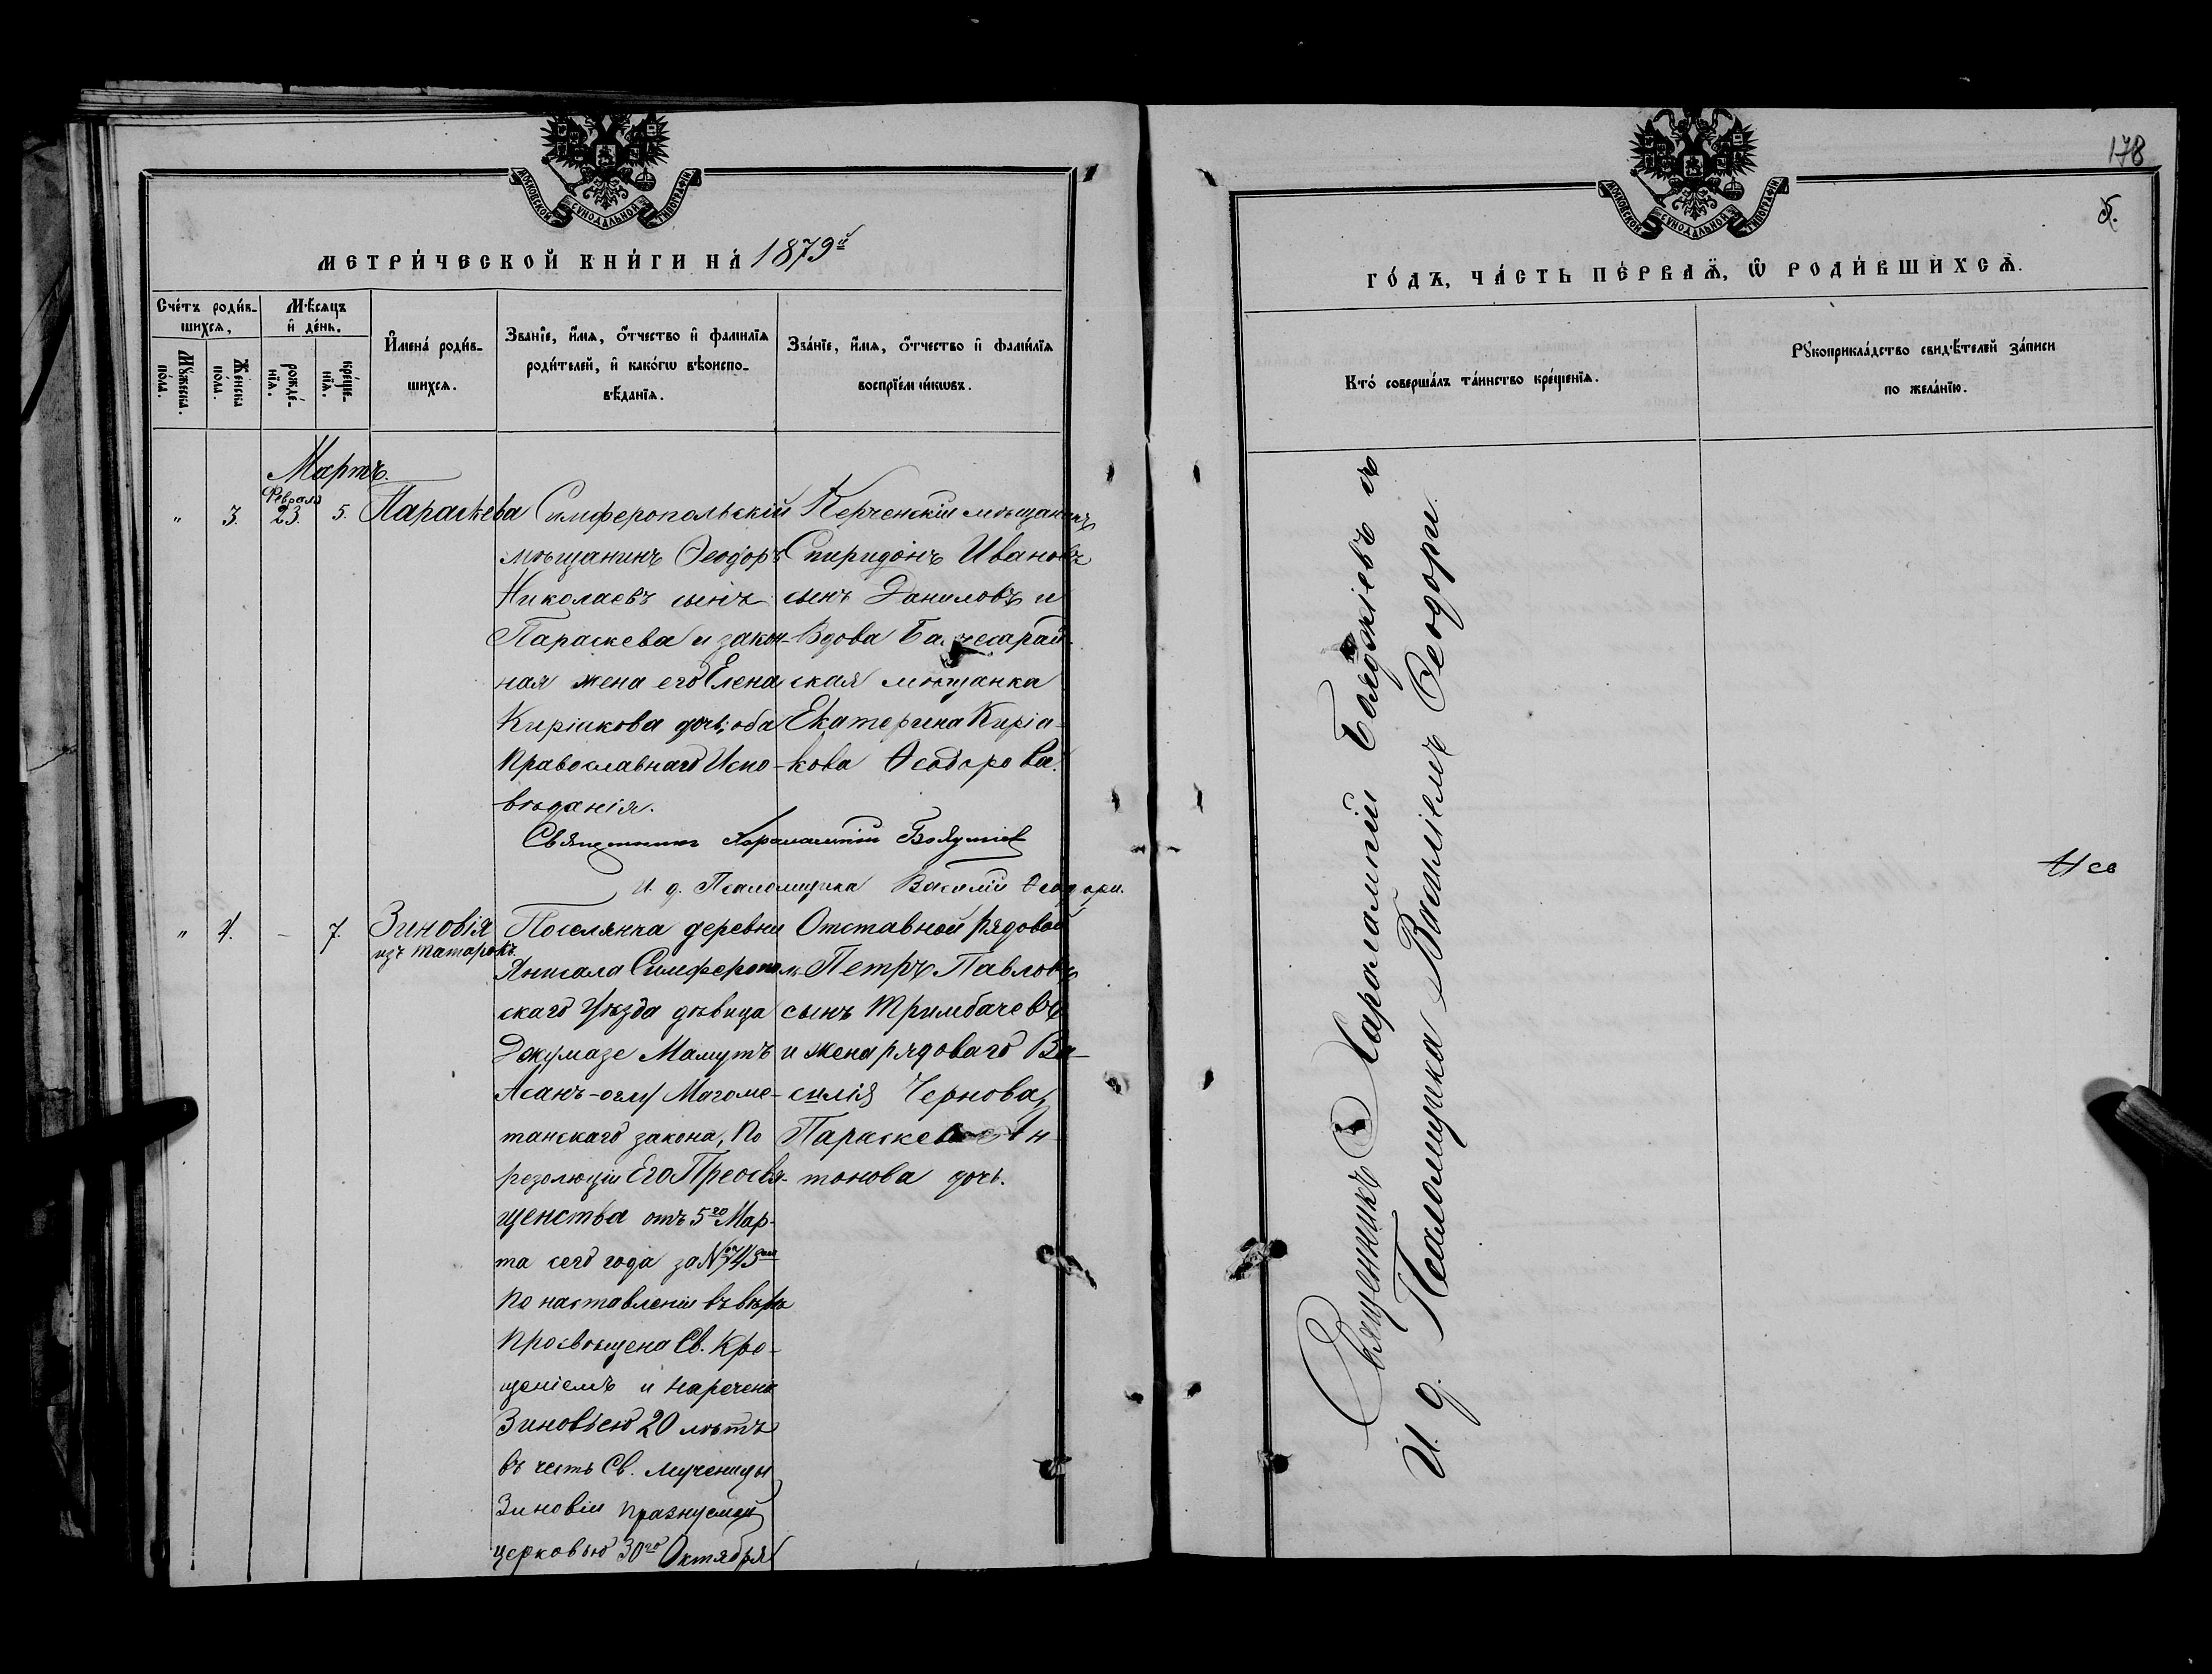 МОСКОВСКОЙ СУНОДАЛЬНОЙ ТИПОГРАФІИ
МЕТРИ́ЧЕСКОЙ КНИ́ГИ НА́ 1879й
Сче́тъ роди́в-
шихсѧ,
Мѣ́сѧцъ
и҆ де́нь.
Мꙋ́жеска
по́ла.
Же́нска
по́ла.
рожде́-
нїѧ.
кре́ще-
нїѧ.
И҆мена́ роди́в-
шихсѧ.
Зва́нїе, и҆́мѧ, ѻ҆́тчество и҆ фами́лїѧ
роди́телей, и҆ како́гѡ вѣроиспо-
вѣ́данїѧ.
Зва́нїе, и҆́мѧ, ѻ҆́тчество и҆ фами́лїѧ
воспрїе́мникѡвъ.
Мартъ.
Февраля
" 3. 23. 5. Параскева
Симферопольскій
мѣщанинъ Ѳеодоръ
Николаевъ сынъ
Параскева и закон-
ная жена его Елена
Киріакова дочь, оба
Православнаго Испо-
вѣданія.
Керченскій мѣщанинъ
Спиридонъ Ивановъ
сынъ Даниловъ и
Вдова Бахчесарай-
ская мѣщанка
Екатерина Киріа-
кова Ѳеодорова.
Священникъ Харалампій
И. д. Псаломщика Василій Ѳеодори.
" 4. - 7. Зиновія
изъ татарокъ.
Поселянка деревни
Янисала Симферополь-
скаго Уѣзда дѣвица
Джумазе Мамутъ
Асанъ-оглу Магоме-
танскаго закона, По
резолюціи Его Преосвя-
щенства отъ 5го Мар-
та сего года за №
По наставленіи въ вѣрѣ
Просвѣщена Св. Кре-
щеніемъ и Наречена
Зиновіею 20 лѣтъ
въ честь Св. Мученицы
Зиновіи празнуемой
церковью 30го Октября
Отставной рядовой
Петръ Павловъ
сынъ Тримбачевъ
и жена рядоваго Ва-
силія Чернова,
Параскева Ан-
тонова дочь.
178
МОСКОВСКОЙ СУНОДАЛЬНОЙ ТИПОГРАФІИ
ГО́ДЪ, ЧА́СТЬ ПЕ́РВАѦ, Ѡ҆ РОДИ́ВШИХСѦ.
Кто́ соверша́лъ та́инство креще́нїѧ.
Рꙋкоприкла́дство свидѣ́телей за́писи
по жела́нїю.
Священникъ Харалампій съ
И. д. Псаломщика Василіемъ Ѳеодори